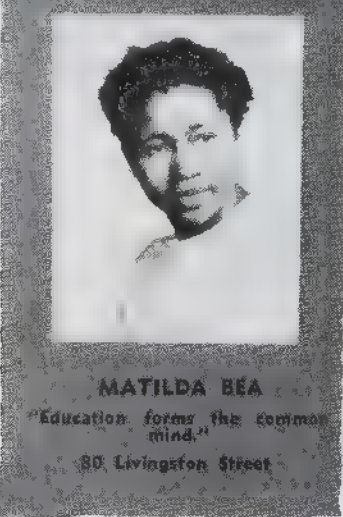 MATILDA BEA
"Education forms the common
mind."
80 Livingston Street